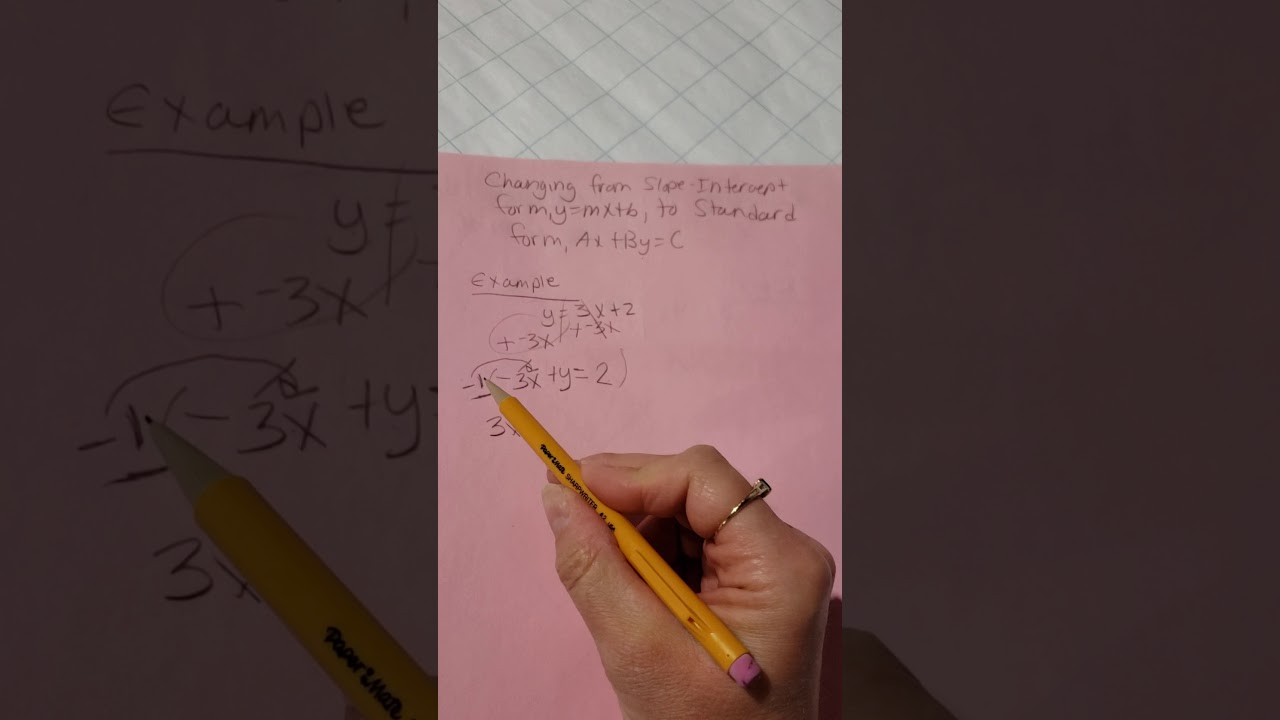 Changing from Slope-Intercept
form, y=mx+b, to Standard
form, Ax+By=C
Example
y=3x+2
+-3x +-3x
-1(-3x+y=2)
3x
PaperMate SHARPWRITER #2